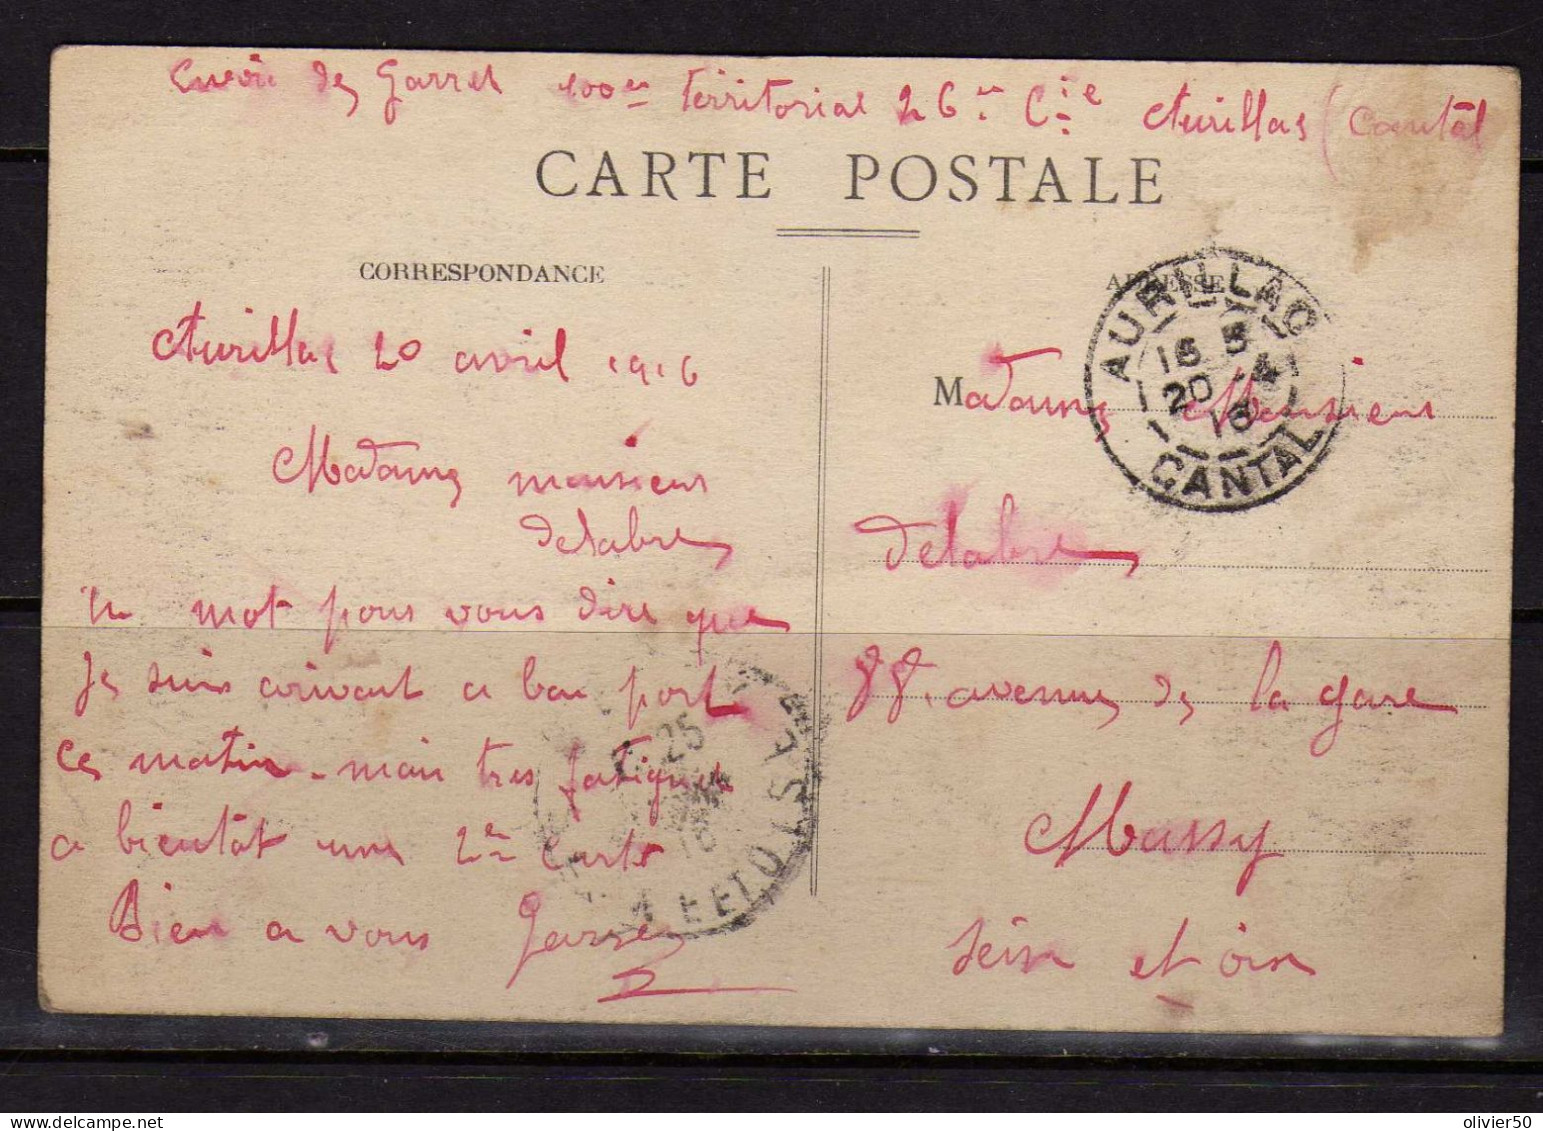 Envoi de Garret 100em territorial 26em Cie Aurillas (Cantal
CARTE POSTALE
CORRESPONDANCE
Aurillas 20 avril 1916
Madame monsieur
Delabre
un mot pour vous dire que
je suis arivant a bon port
ce matin. mais tres fatigue
a bientôt une 2em Carte
Bien a vous Garre
ADRESSE
AURILLAC
16 5
20 - 4
16
CANTAL
Madame Monsieur
Delabre
88. avenue de la gare
Massy
Seine et oise
25
16
SEINE ET OISE
olivier50